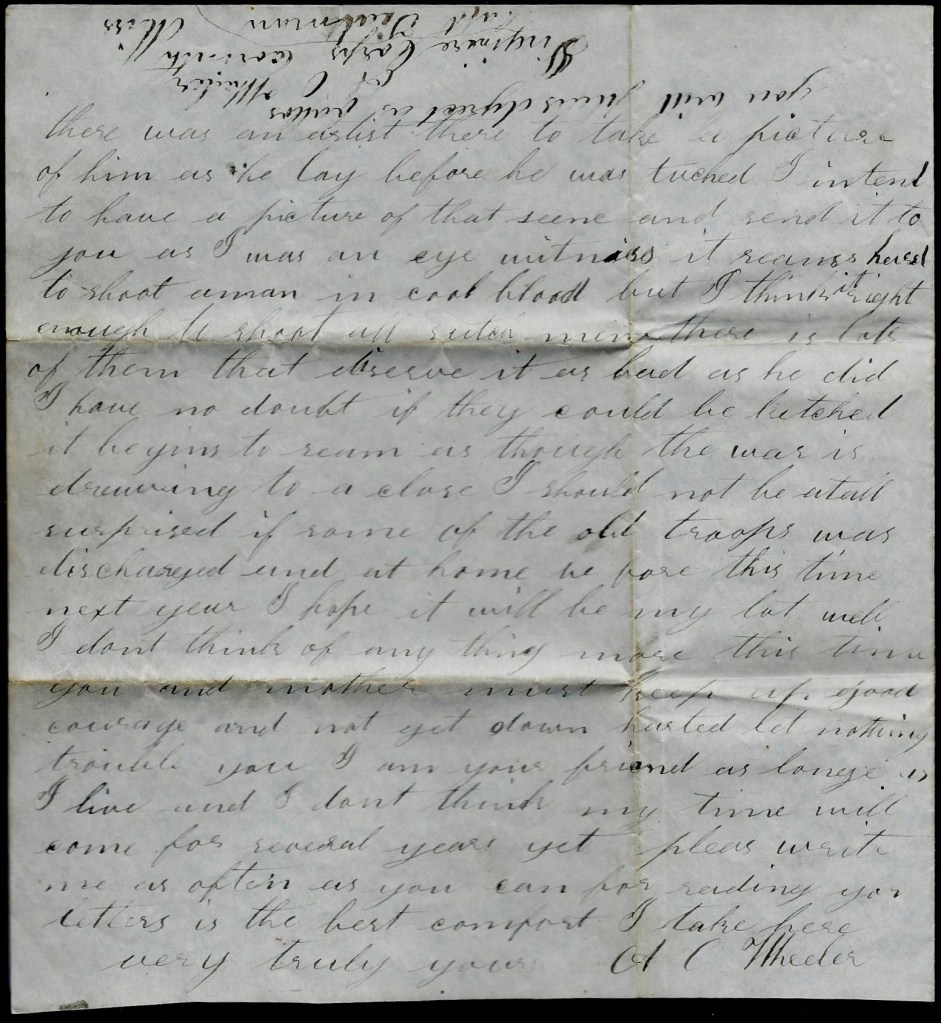 there was an artist there to take a picture
of him as he lay before he was tuched I intend
to have a picture of that seene and send it to
you as I was an eye witness it seams hard
to shoot aman in cool blood but I think it right
enough to shoot all such men there is lots
of them that diserve it as bad as he did
I have no doubt if they could be ketched
it begins to seam as though the war is
drawing to a close I should not be atall
surprised if some of the old troops was
discharged and at home be fore this time
next year I hope it will be my lot well
I dont think of any thing more this time
you and mother must keep up good
courage and not get down harted let nothing
trouble you I am your friend as longe as
I live and I dont think my time will
come for several years yet pleas write
me as often as you can for reading your
letters is the best comfort I take here
very truly yours A C Wheeler
you will direct as
A C Wheeler
Corps Corinth
Miss